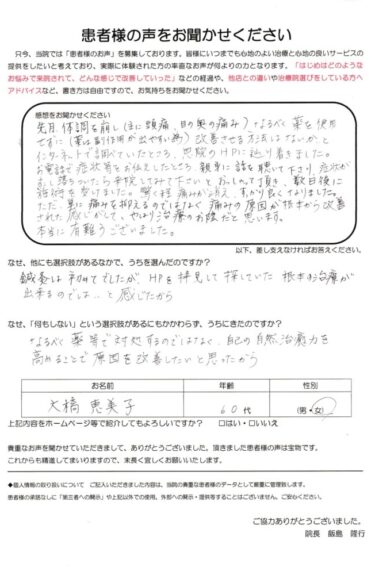 患者様の声をお聞かせください
只今、当院では「患者様のお声」を募集しております。皆様にいつまでも心地のよい治療と心地の良いサービスの
提供をしたいと考えており、実際に体験された方の率直なお声が何よりの力となります。「はじめはどのような
お悩みで来院されて、どんな感じで改善していった」などの経過や、他店との違いや治療院選びをしている方へ
アドバイスなど、書き方は自由ですので、お気持ちをお聞かせください。
感想をお聞かせください
先月、体調を崩し(主に頭痛、目の奥の痛み)なるべく薬を使用
せずに(薬は副作用が出やすい為)改善させる方法はないかと
インターネットで調べていたところ、貴院のHPに辿り着きました。
お電話で症状等をお伝えしたところ、親身に話を聴いて下さり、症状が
少し落ちついたら来院してみて下さいと おっしゃって頂き、数日後に
施術を受けました。
痛みが消え、すごく良くなりました。
ただ、単に痛みを抑えるのではなく 痛みの原因が根本から改善
された感じがして、やはり治療のお陰だと思います。
本当に有難うございました。
以下、差し支えなければお答えください。
なぜ、他にも選択肢があるなかで、うちを選んだのですか?
鍼灸は初めてでしたが、HPを拝見して探していた 根本的治療が
出来るのでは…と感じたから
なぜ、「何もしない」という選択肢があるにもかかわらず、うちにきたのですか?
なるべく薬等で対処するのではなく、自己の自然治癒力を
高めることで原因を改善したいと思ったから
お名前 年齢 性別
大橋 恵美子 60代 (男・女)
上記内容をホームページ等で紹介してもよろしいですか? □はい・□いいえ
貴重なお声を聞かせていただきまして、ありがとうございました。頂きました患者様の声は宝物です。
これからも精進してまいりますので、末長く宜しくお願いいたします。
◆個人情報の取り扱いについて ご記入いただきました内容は、当院の貴重な患者様のデータとして厳重に管理致します。
患者様の承諾なしに「第三者への開示」や上記以外での使用、外部への開示・提供等することはございません。ご安心ください。
ご協力ありがとうございました。
院長 飯島 隆行